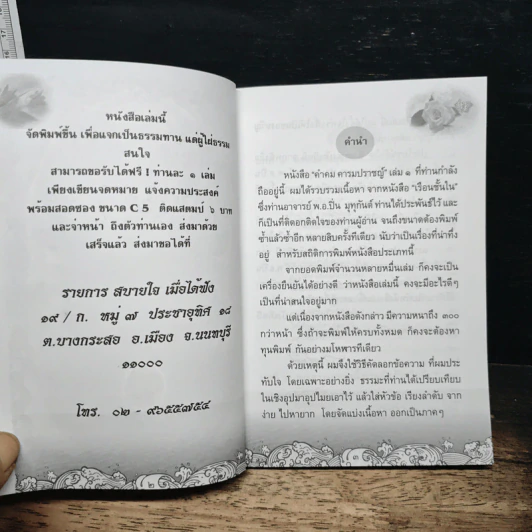 หนังสือเล่มนี้
จัดพิมพ์ขึ้น เพื่อแจกเป็นธรรมทาน แด่ผู้ใฝ่ธรรม
สนใจ
สามารถขอรับได้ฟรี ! ท่านละ ๑ เล่ม
เพียงเขียนจดหมาย แจ้งความประสงค์
พร้อมสอดซอง ขนาด C 5 ติดแสตมป์ ๖ บาท
และจ่าหน้า ถึงตัวท่านเอง ส่งมาด้วย
เสร็จแล้ว ส่งมาขอได้ที่
รายการ สบายใจ เมื่อได้ฟัง
๑๙ / ก. หมู่ ๗ ประชาอุทิศ ๑๘
ต.บางกระสอ อ.เมือง จ.นนทบุรี
๑๑๐๐๐
โทร. ๐๒ - ๙๖๕๕๗๕๔
๒
คำนำ
หนังสือ “คำคม คารมปราชญ์” เล่ม ๑ ที่ท่านกำลัง
ถืออยู่นี้ ผมได้รวบรวมเนื้อหา จากหนังสือ “เรือนชั้นใน”
ซึ่งท่านอาจารย์ พ.อ.ปิ่น มุทุกันต์ ท่านได้ประพันธ์ไว้ และ
ก็เป็นที่ติดอกติดใจของท่านผู้อ่าน จนถึงขนาดต้องพิมพ์
ซ้ำแล้วซ้ำอีก หลายสิบครั้งทีเดียว นับว่าเป็นเรื่องที่น่าทึ่ง
อยู่ สำหรับสถิติการพิมพ์หนังสือประเภทนี้
จากยอดพิมพ์จำนวนหลายหมื่นเล่ม ก็คงจะเป็น
เครื่องยืนยันได้อย่างดี ว่าหนังสือเล่มนี้ คงจะมีอะไรดีๆ
เป็นที่น่าสนใจอยู่มาก
แต่เนื่องจากหนังสือดังกล่าว มีความหนาถึง ๓๐๐
กว่าหน้า ซึ่งถ้าจะพิมพ์ให้ครบทั้งหมด ก็คงจะต้องหา
ทุนพิมพ์ กันอย่างมโหฬารทีเดียว
ด้วยเหตุนี้ ผมจึงใช้วิธีคัดลอกข้อความ ที่ผมประ
ทับใจ โดยเฉพาะอย่างยิ่ง ธรรมะที่ท่านได้เปรียบเทียบ
ในเชิงอุปมาอุปไมยเอาไว้ แล้วใส่หัวข้อ เรียงลำดับ จาก
ง่าย ไปหายาก โดยจัดแบ่งเนื้อหา ออกเป็นภาคๆ
๓